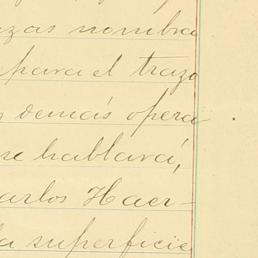 zas nombra
para el trazo
demás opera
se hablará,
arlos Haer-
la superficie